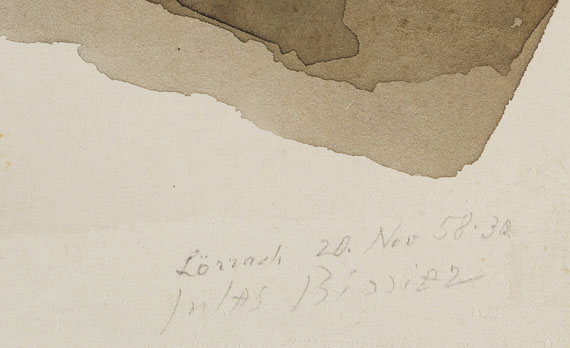 Lörrach 20. Nov 58.30
Julius Bissier